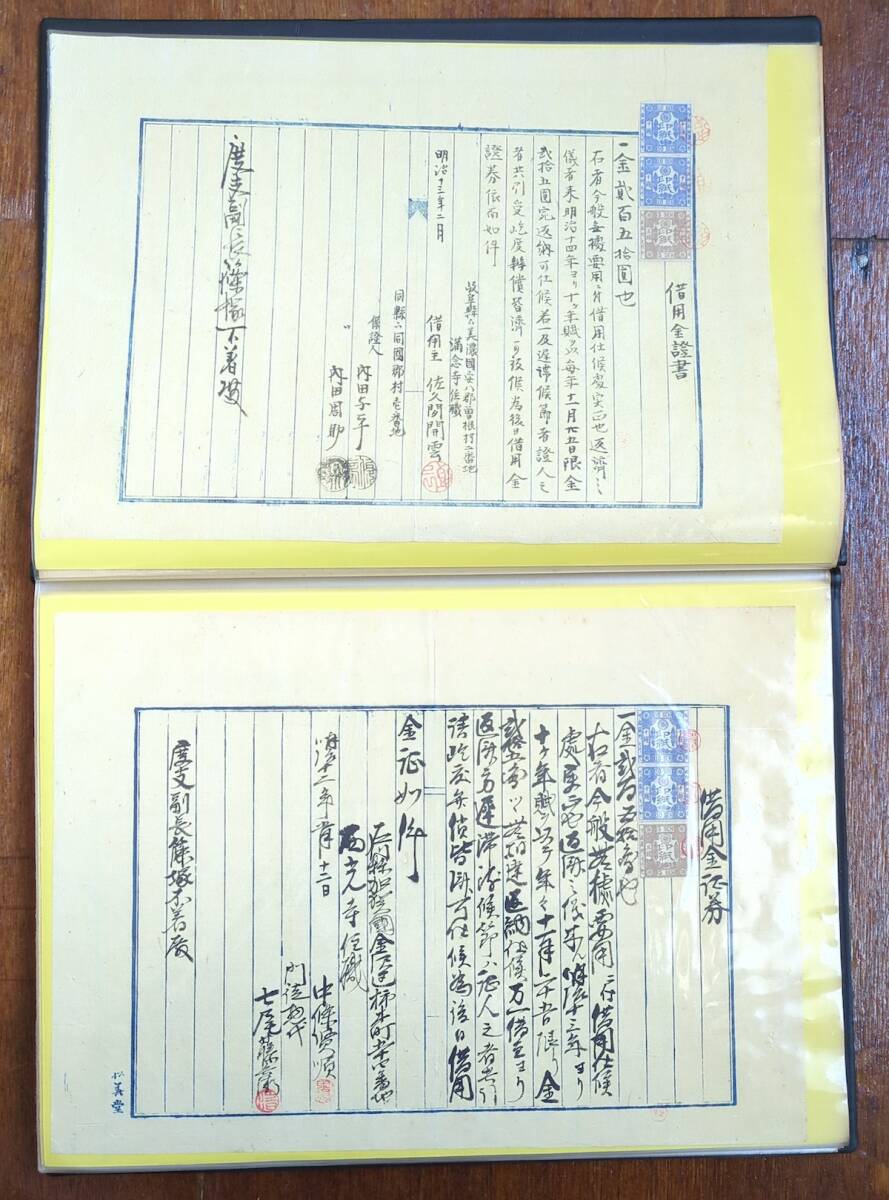 借用金證書
一金貳百五拾圓也
右者今般無據要用ニ付借用仕候處実正也返濟之
儀者来明治十四年ヨリ十ヶ年賦ニ〆毎年十一月廿五日限金
貳拾五圓宛返納可仕候若一及遅滞候節者證人之
者共引受屹度辨償皆濟可致候為後日借用金
證券依而如件
明治十三年二月
岐阜縣下美濃國安八郡曽根村二番地
満念寺住職
借用主 佐久間開雲
同縣下同國郡村壱番地
保證人
内田与平
〃 内田周助
度支副長篠塚不着殿
借用金证券
一金貳百五拾圓也
右者今般無據要用ニ付借用仕候
處実正也返済之儀来ル明治十三年ヨリ
十ヶ年賦ニ〆年々十一月二十五日限リ金
貳拾五圓ツヽ無相違返納仕候万一借主ヨリ
返済方遅滞致候節ハ证人之者共引
請屹度弁償皆済可仕候為後日借用
金证如件
明治十二年 月十二日
石川縣加賀國金沢 柿木町 番地
西光寺住職
中條賢順
門徒惣代
七尾藤
度支副長篠塚不着殿
松美堂